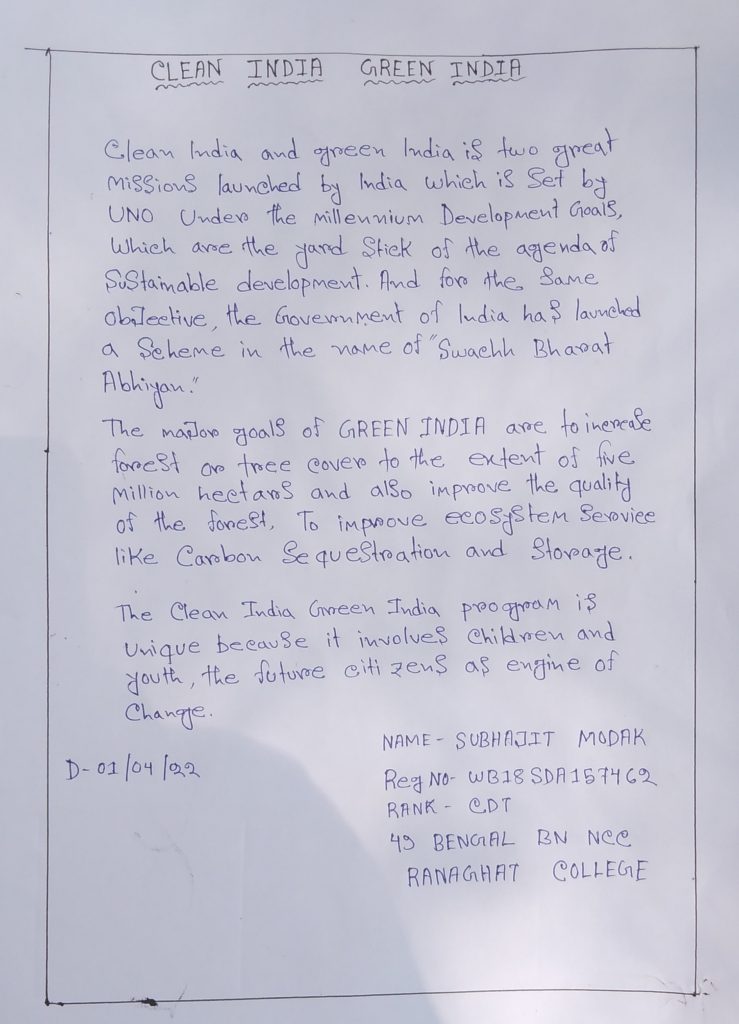 CLEAN INDIA GREEN INDIA
Clean India and green India is two great
missions launched by India which is set by
UNO Under the millennium Development Goals,
Which are the yard stick of the agenda of
Sustainable development. And for the same
objective, the Government of India has launched
a Scheme in the name of "Swachh Bharat
Abhiyan."
The major goals of GREEN INDIA are to increase
forest or tree cover to the extent of five
million hectars and also improve the quality
of the forest, To improve ecosystem Service
like Carbon Sequestration and Storage.
The Clean India Green India program is
Unique because it involves Children and
youth, the future citizens as engine of
Change.
NAME - SUBHAJIT MODAK
D- 01/04/22
Reg No- WB18SDA157462
RANK - CDT
49 BENGAL BN NCC
RANAGHAT COLLEGE